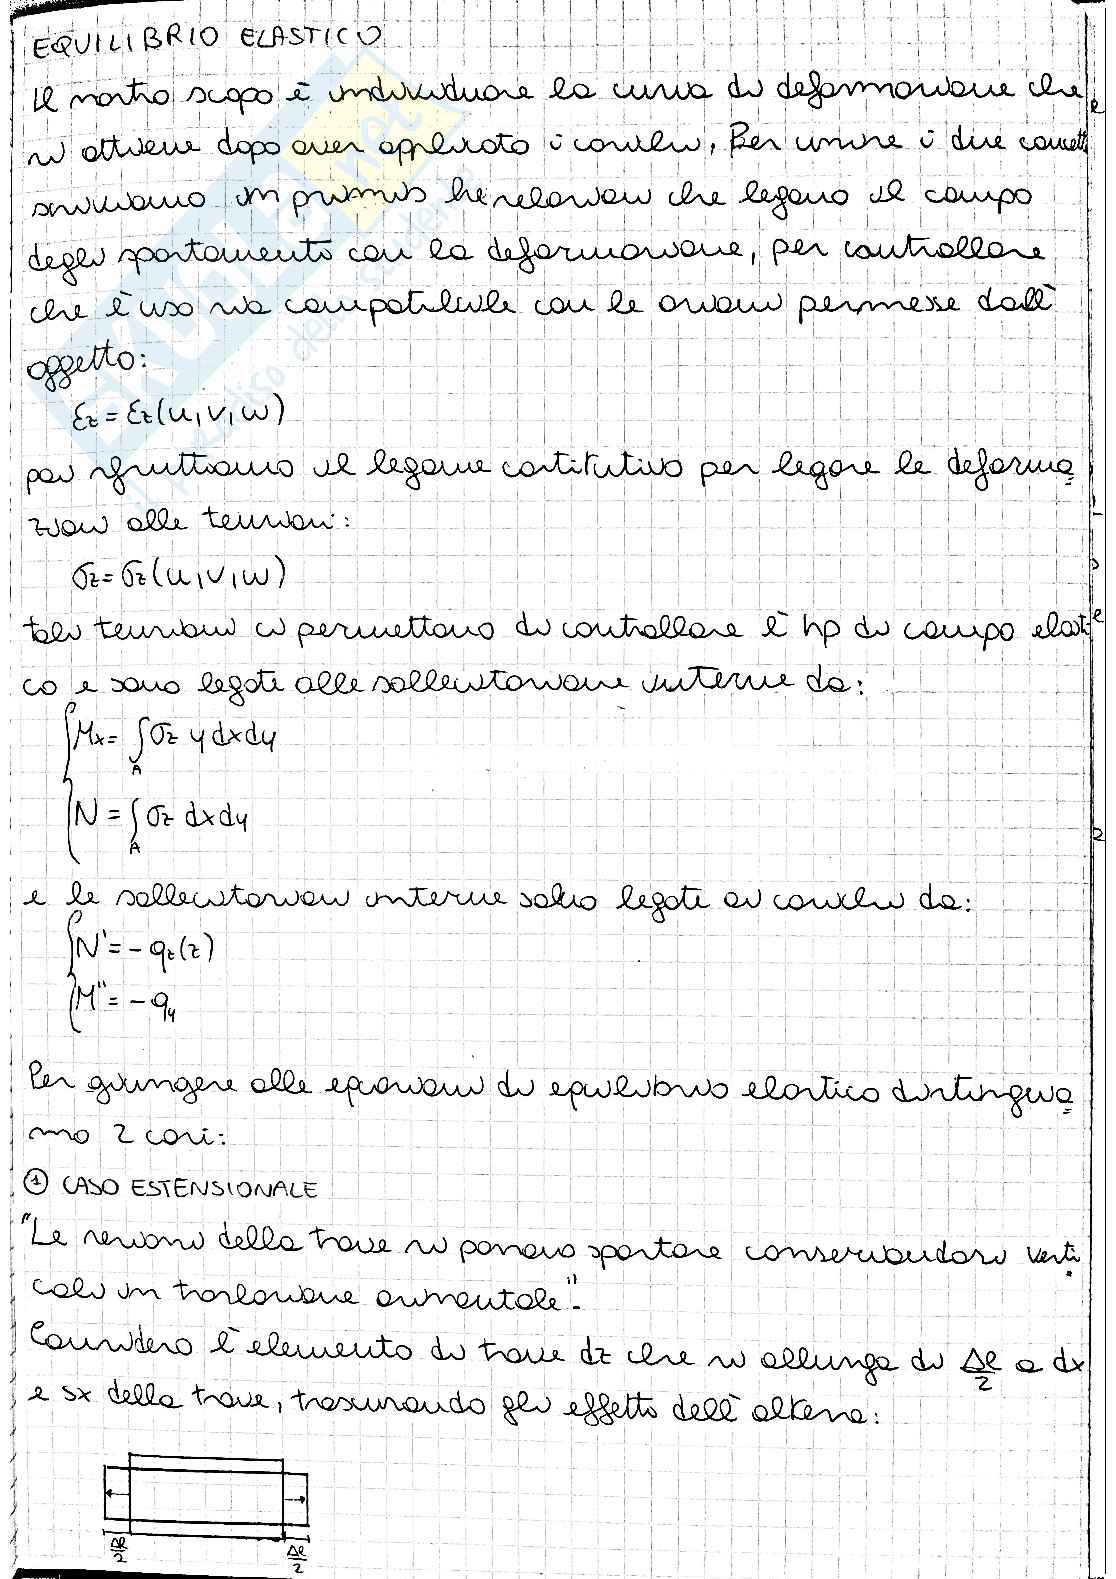 EQUILIBRIO ELASTICO
Il nostro scopo è individuare la curva di deformazione che
si ottiene dopo aver applicato i carichi. Per unire i due concetti
scriviamo in primis le relazioni che legano il campo
degli spostamento con la deformazione, per controllare
che esso sia compatibile con le azioni permesse dall'
oggetto:
εz = εz(u,v,w)
poi sfruttiamo il legame costitutivo per legare le deforma=
zioni alle tensioni:
σz = σz(u,v,w)
tali tensioni ci permettono di controllare l'hp di campo elasti
co e sono legate alle sollecitazione interne da:
Mx = ∫A σz y dxdy
N = ∫A σz dxdy
e le sollecitazioni interne sono legate ai carichi da:
N' = - qz(z)
M'' = - qy
Per giungere alle equazioni di equilibrio elastico distinguia=
mo 2 casi:
① CASO ESTENSIONALE
"Le sezioni della trave si possono spostare conservandosi verti
cali in traslazione orizzontale".
Considero l'elemento di trave dz che si allunga di Δl/2 a dx
e sx della trave, trascurando gli effetto dell'altezza:
Δl/2 Δl/2